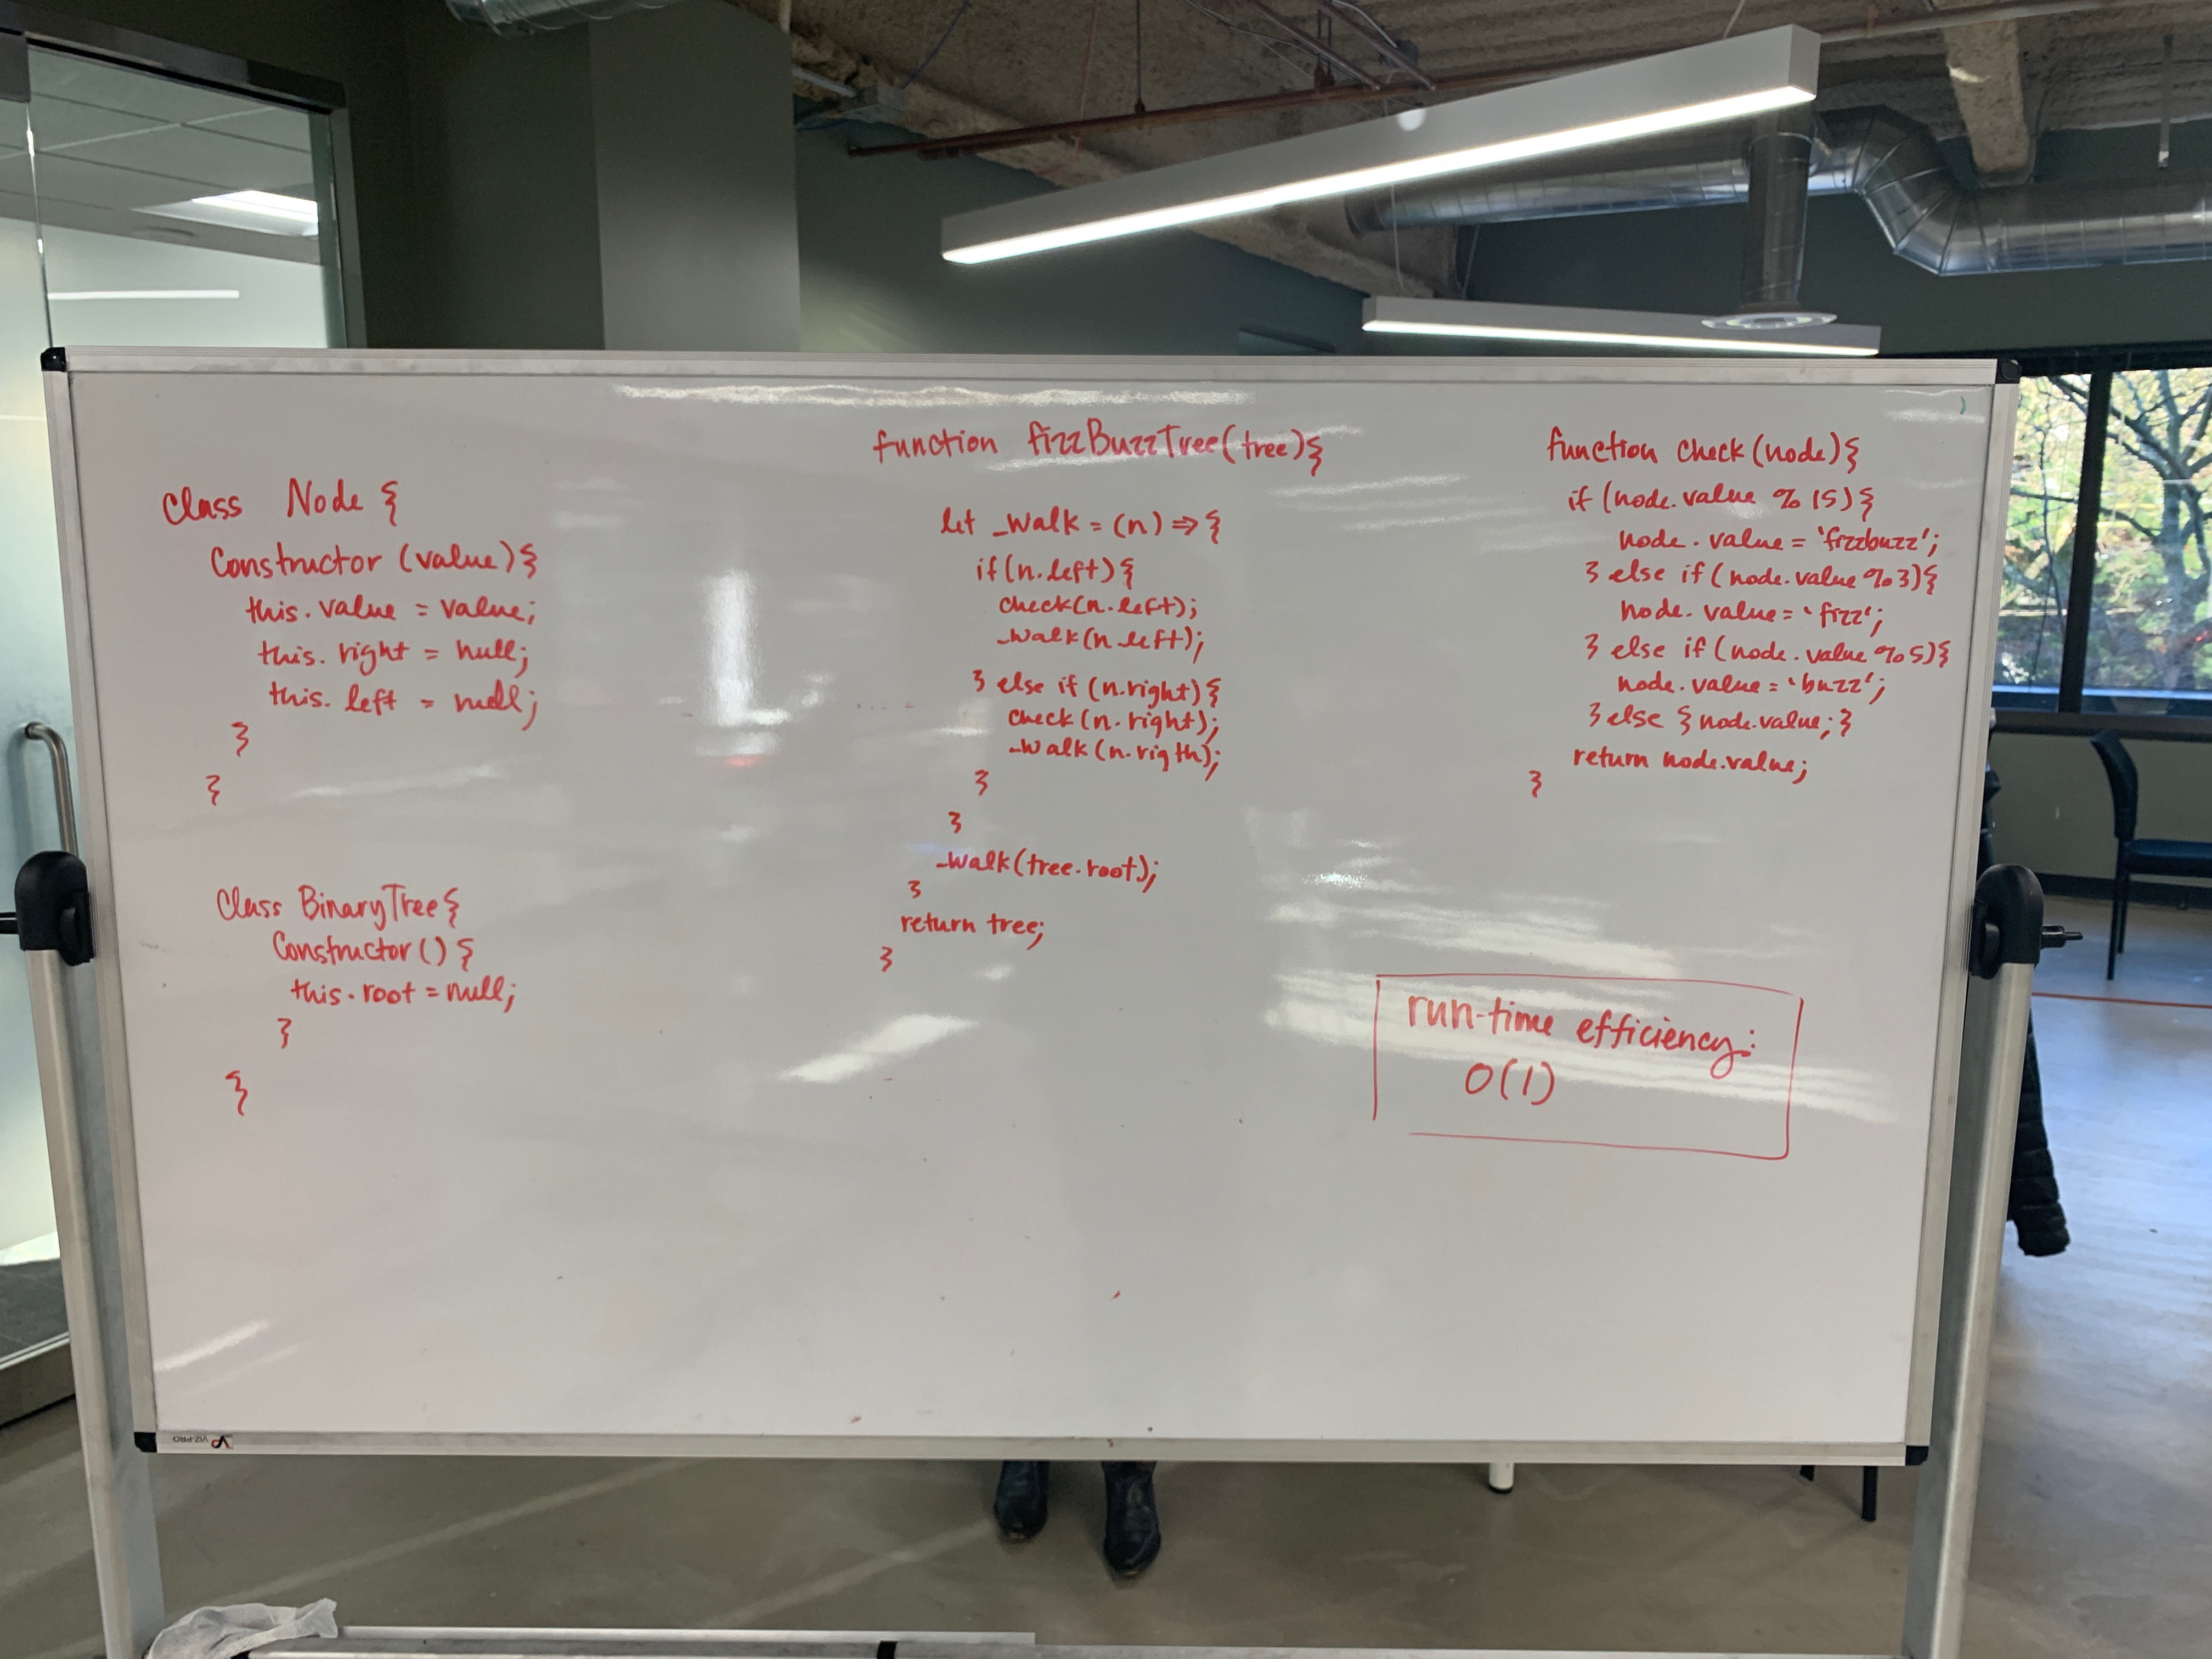 class Node {
Constructor (value) {
this.value = value;
this.right = null;
this.left = null;
}
}
Class BinaryTree {
Constructor () {
this.root = null;
}
}
function fizzBuzzTree(tree) {
let _walk = (n) => {
if (n.left) {
check(n.left);
_walk(n.left);
} else if (n.right) {
check(n.right);
_walk(n.rigth);
}
}
_walk(tree.root);
}
return tree;
}
function check (node) {
if (node.value % 15) {
node.value = 'fizzbuzz';
} else if (node.value % 3) {
node.value = 'fizz';
} else if (node.value % 5) {
node.value = 'buzz';
} else { node.value; }
return node.value;
}
run-time efficiency:
O(1)
VIZ-PRO